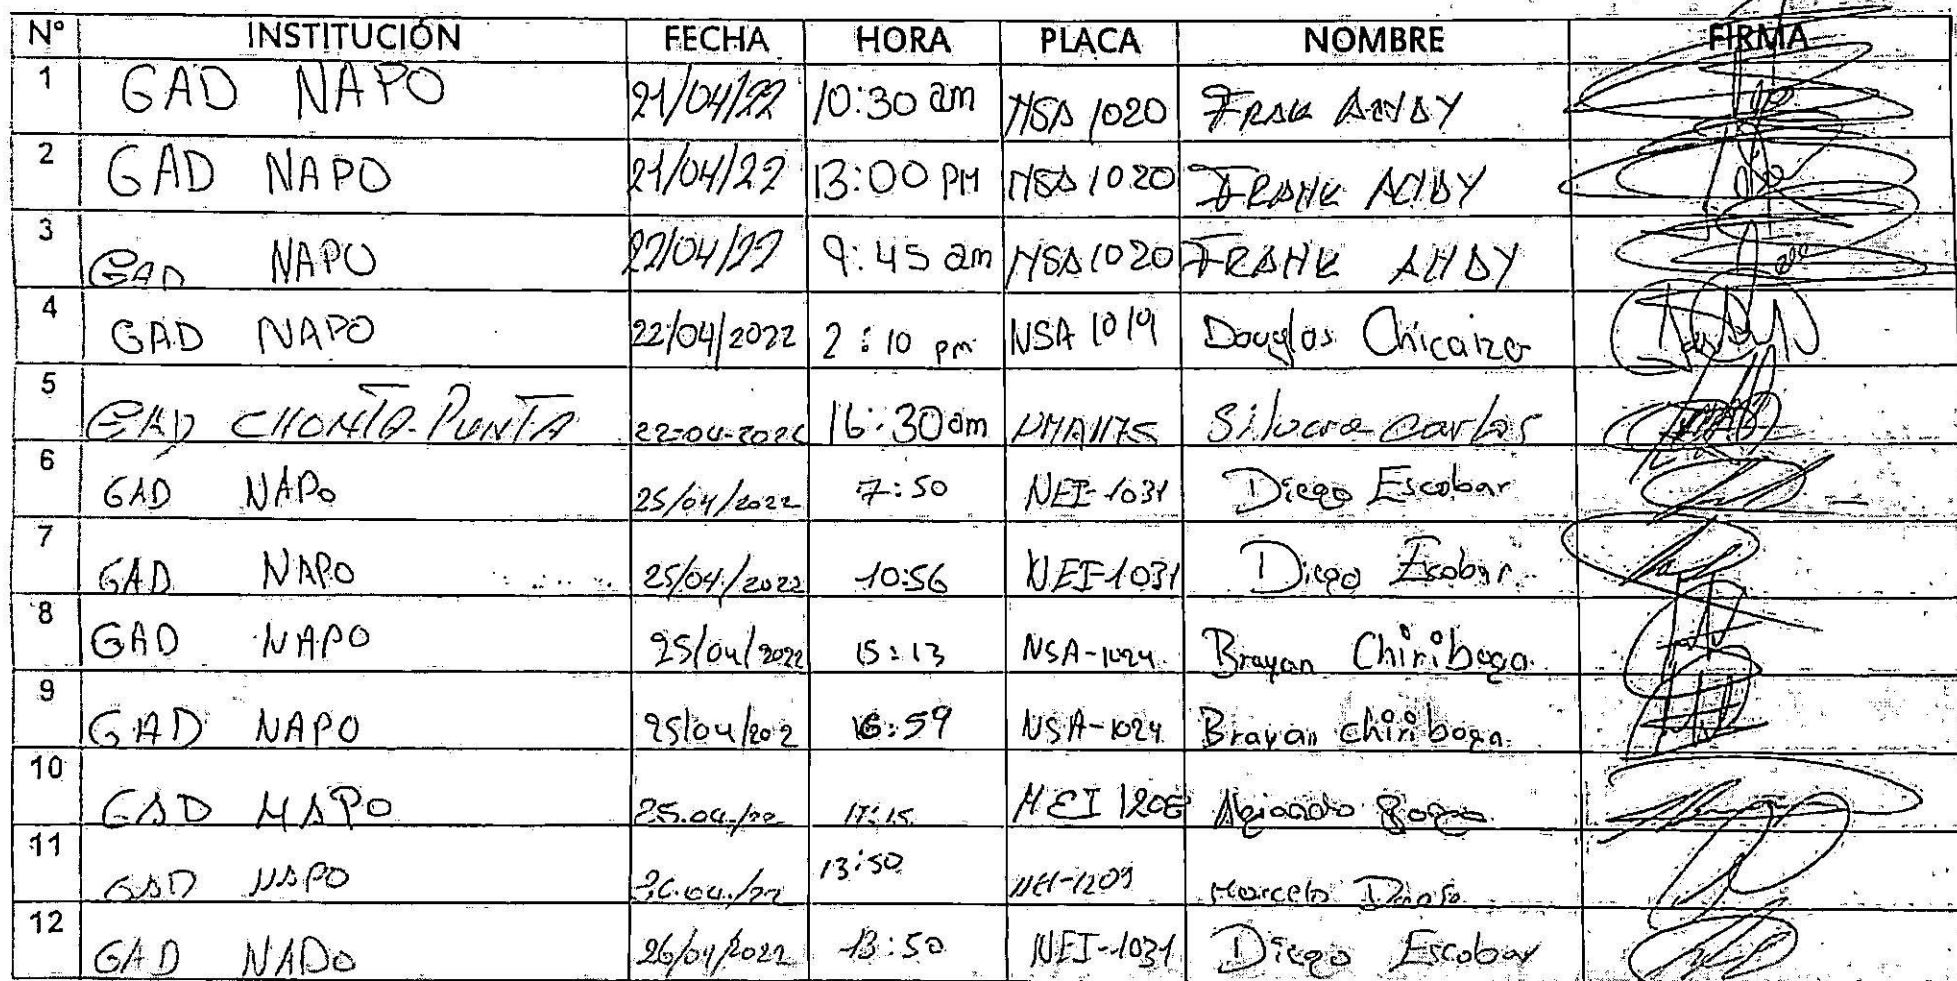 N° INSTITUCIÓN FECHA HORA PLACA NOMBRE FIRMA
1 GAD NAPO 21/04/22 10:30 am NSA 1020 FRAK ANDY
2 GAD NAPO 21/04/22 13:00 PM NSA 1020 FRANK ANDY
3 GAD NAPO 22/04/22 9:45 am NSA 1020 FRANK ANDY
4 GAD NAPO 22/04/2022 2:10 pm NSA 1019 Douglas Chicaiza
5 GAD CHONTA-PUNTA 22-04-2022 16:30am Carlos
6 GAD NAPO 25/04/2022 7:50 NEI-1031 Diego Escobar
7 GAD NAPO 25/04/2022 10:56 NEI-1031 Diego Escobar
8 GAD NAPO 25/04/2022 15:13 NSA-1024 Brayan Chiriboga
9 GAD NAPO 25/04/202 16:59 NSA-1024 Brayan Chiriboga
10 GAD NAPO 25.04./22 17:15 NEI 1208
11 GAD NAPO 26.04./22 13:50 Marcelo
12 GAD NAPO 26/04/2022 13:50 NEI-1031 Diego Escobar